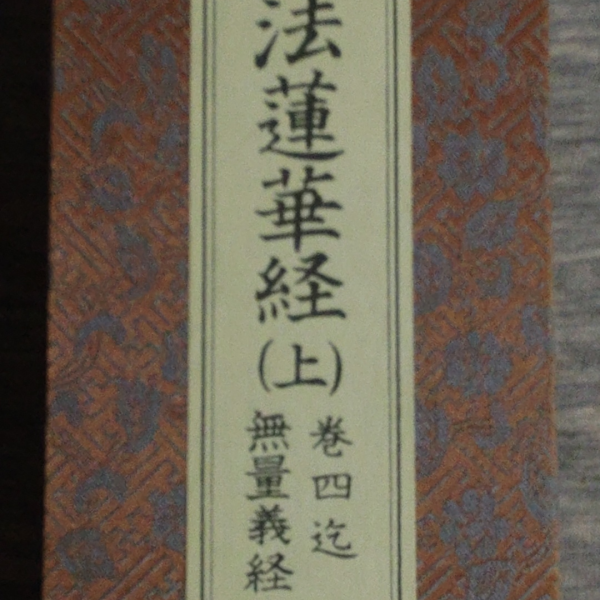 法蓮華経(上)
巻四迄
無量義経